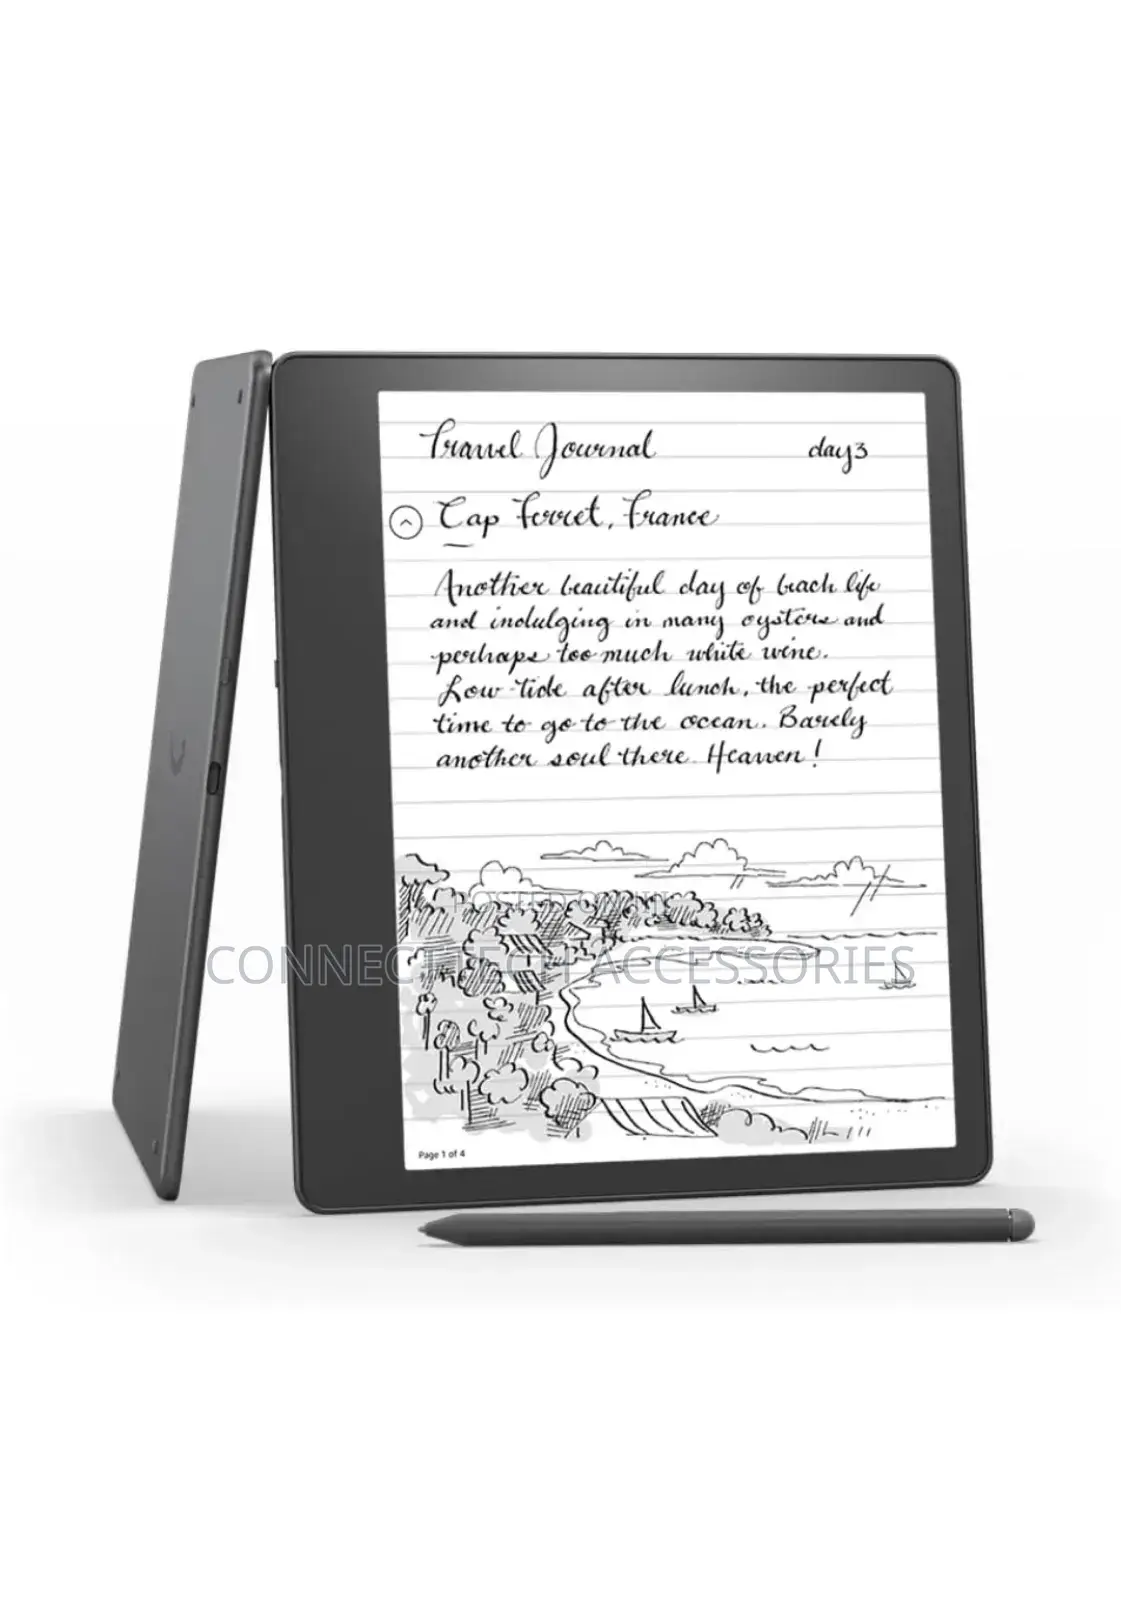 Travel Journal day 3
Cap Ferret, France
Another beautiful day of beach life
and indulging in many oysters and
perhaps too much white wine.
Low tide after lunch, the perfect
time to go to the ocean. Barely
another soul there. Heaven!
POSTED ON JIJI
CONNECT TECH ACCESSORIES
Page 1 of 4